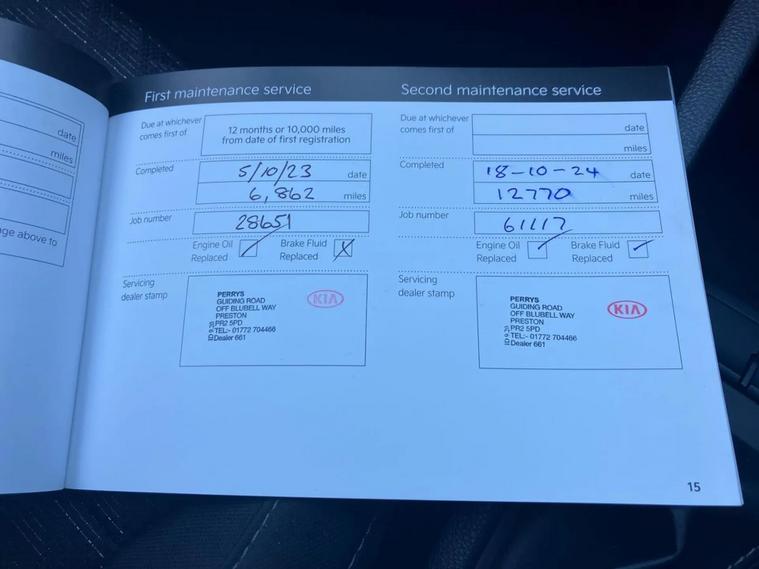 date
miles
ge above to
First maintenance service
Due at whichever
comes first of
12 months or 10,000 miles
from date of first registration
Completed
5/10/23 date
6,862 miles
Job number
28651
Engine Oil
Replaced
Brake Fluid
Replaced
Servicing
dealer stamp
PERRYS
GUIDING ROAD
OFF BLUBELL WAY
PRESTON
PR2 5PD
TEL:- 01772 704466
Dealer 661
KIA
Second maintenance service
Due at whichever
comes first of
date
miles
Completed
18-10-24 date
12770 miles
Job number
61117
Engine Oil
Replaced
Brake Fluid
Replaced
Servicing
dealer stamp
PERRYS
GUIDING ROAD
OFF BLUBELL WAY
PRESTON
PR2 5PD
TEL:- 01772 704466
Dealer 661
KIA
15